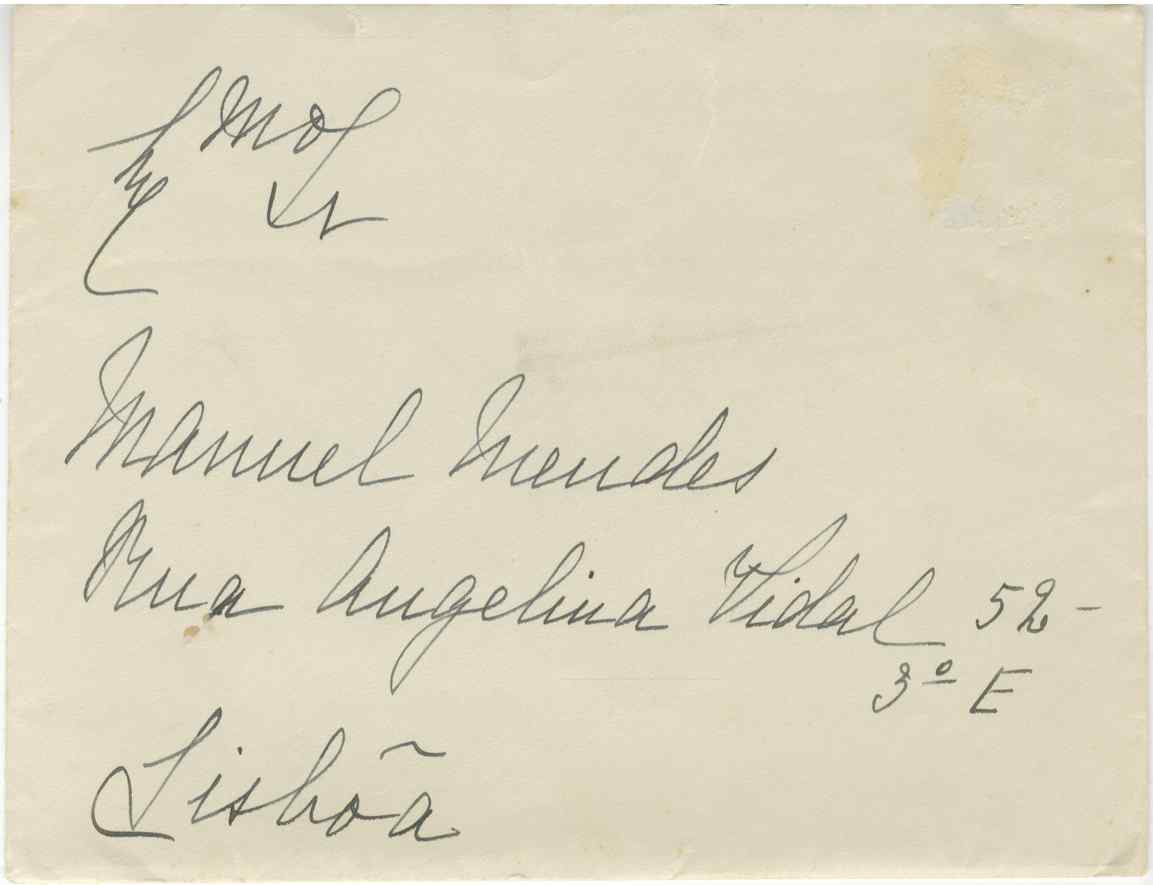 Exmo Sr
Manuel Mendes
Rua Angelina Vidal 52-
3º E
Lisbõa